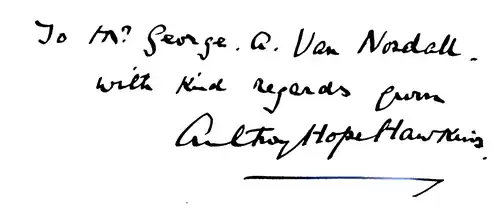 To Mr. George. A. Van Nosdall.
with kind regards from
Anthony Hope Hawkins.